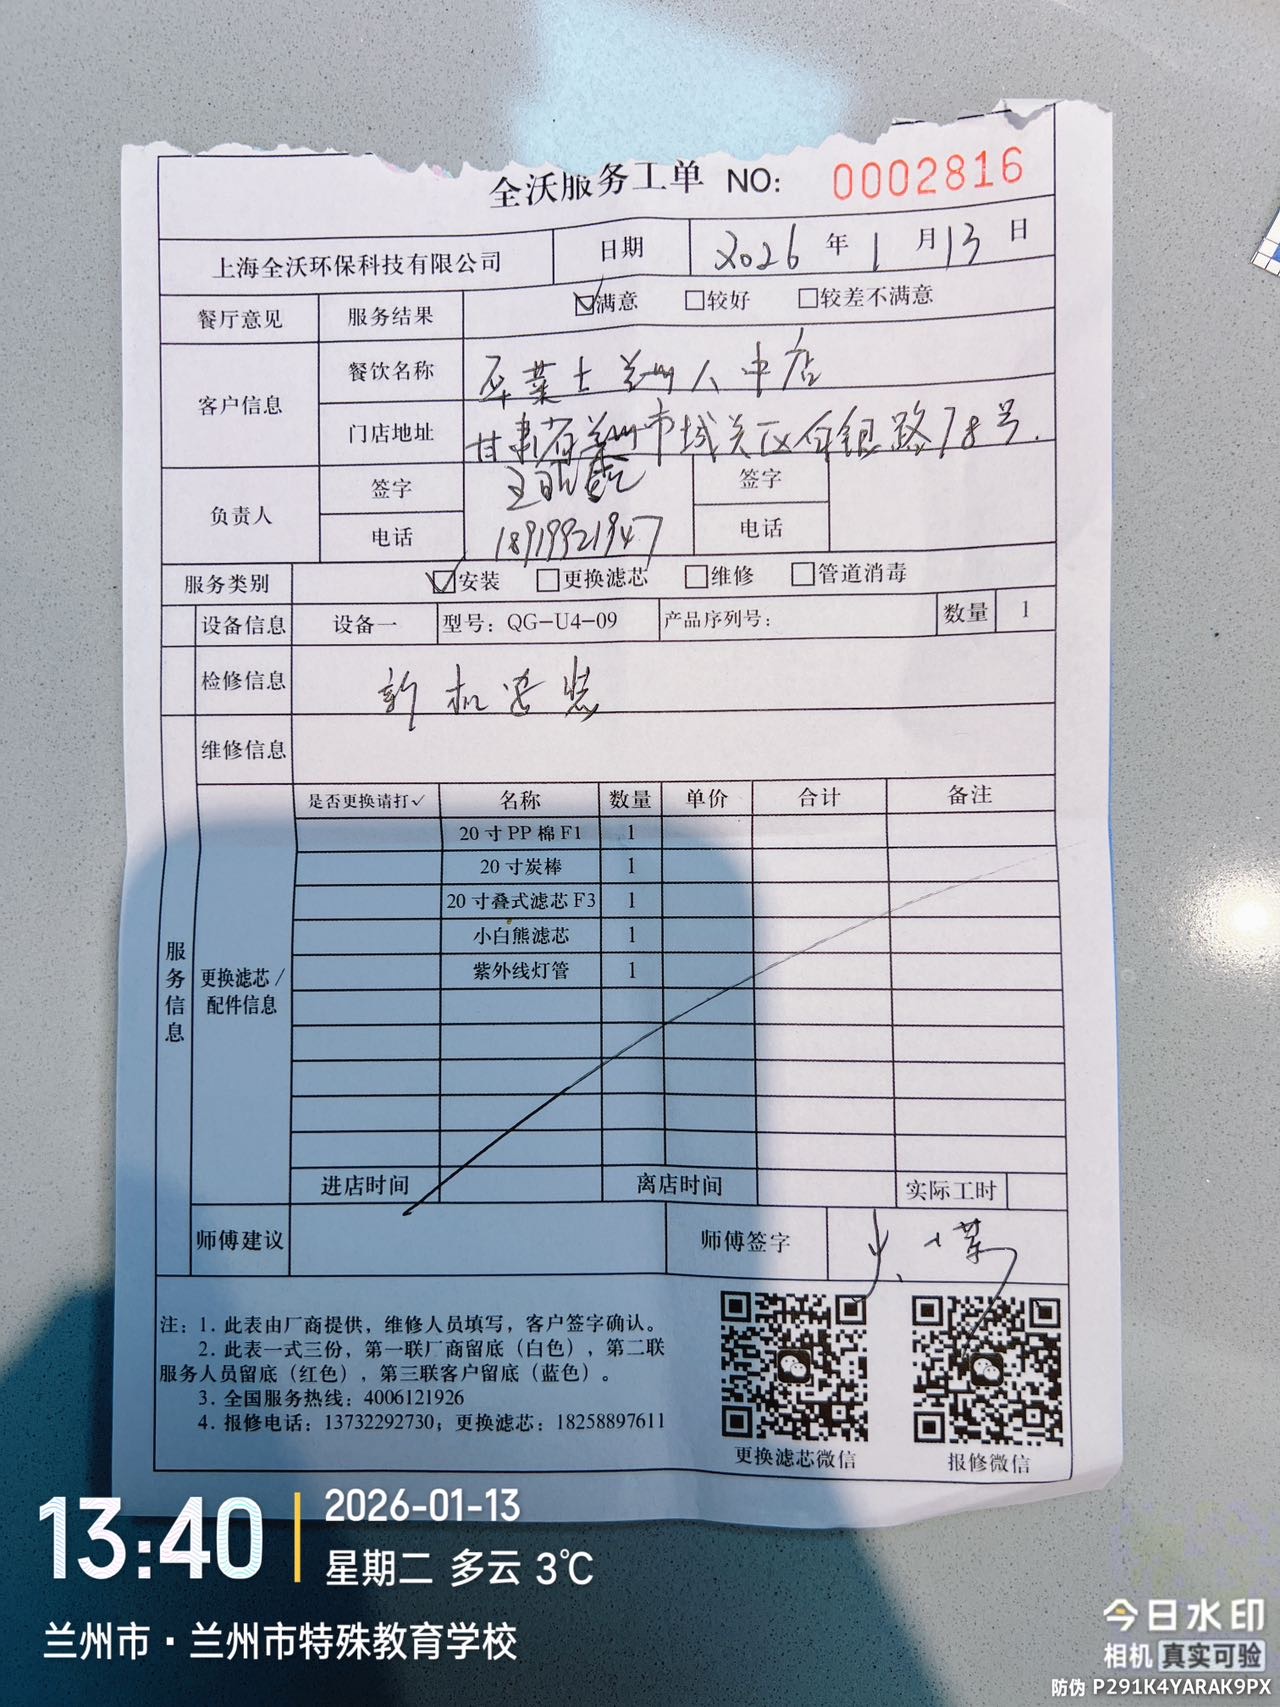 全沃服务工单 NO: 0002816
上海全沃环保科技有限公司 日期 2026 年 1 月 13 日
餐厅意见 服务结果 ☑满意 □较好 □较差不满意
客户信息 餐饮名称 兰州人中店
门店地址 甘肃省兰州市城关区白银路78号.
负责人 签字 王 签字
电话 18919921947 电话
服务类别 ☑安装 □更换滤芯 □维修 □管道消毒
设备信息 设备一 型号: QG-U4-09 产品序列号: 数量 1
检修信息 新机安装
维修信息
服务信息
更换滤芯/配件信息
是否更换请打✓ 名称 数量 单价 合计 备注
20寸PP棉F1 1
20寸炭棒 1
20寸叠式滤芯F3 1
小白熊滤芯 1
紫外线灯管 1
进店时间 离店时间 实际工时
师傅建议 师傅签字
注: 1. 此表由厂商提供, 维修人员填写, 客户签字确认。
2. 此表一式三份, 第一联厂商留底(白色), 第二联
服务人员留底(红色), 第三联客户留底(蓝色)。
3. 全国服务热线: 4006121926
4. 报修电话: 13732292730; 更换滤芯: 18258897611
更换滤芯微信 报修微信
13:40 2026-01-13
星期二 多云 3℃
兰州市·兰州市特殊教育学校
今日水印
相机 真实可验
防伪 P291K4YARAK9PX